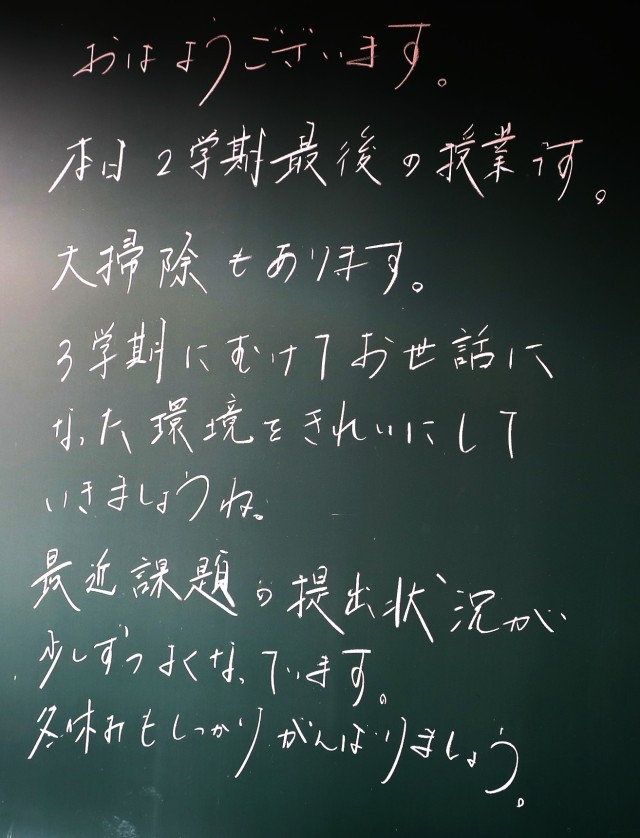 おはようございます。
本日2学期最後の授業です。
大掃除もあります。
3学期にむけてお世話に
なった環境をきれいにして
いきましょうね。
最近課題の提出状況が
少しずつよくなっています。
冬休みもしっかりがんばりましょう。